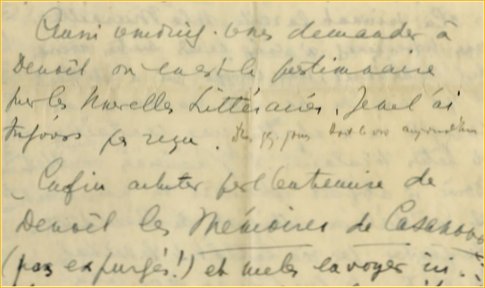 Aussi voudriez-vous demander à
Denoël où en est le questionnaire
sur les Nouvelles Littéraires. Je ne l'ai
toujours pas reçu.
Enfin acheter par l'entremise de
Denoël les Mémoires de Casanova
(pas expurgés!) et me les envoyer ici.